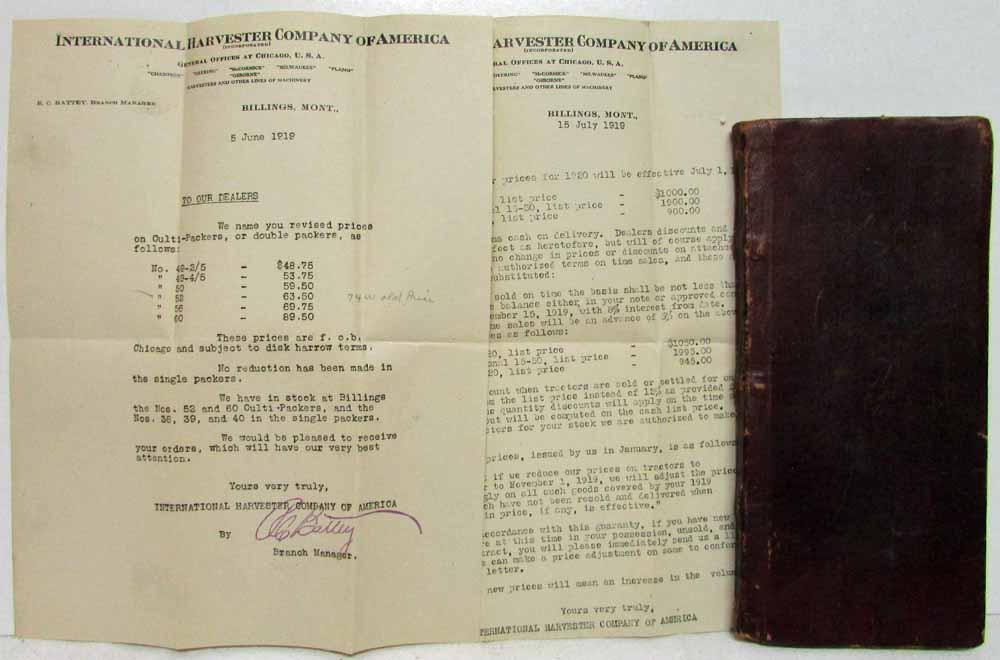 INTERNATIONAL HARVESTER COMPANY OF AMERICA
(INCORPORATED)
GENERAL OFFICES AT CHICAGO, U. S. A.
"CHAMPION" "DEERING" "McCORMICK" "MILWAUKEE" "PLANO"
"OSBORNE"
HARVESTERS AND OTHER LINES OF MACHINERY
BATTEY, BRANCH MANAGER
BILLINGS, MONT.,
5 June 1919
TO OUR DEALERS
We name you revised prices
on Culti-Packers, or double packers, as
follows:
No. 49-2/5 - $48.75
" 49-4/5 - 53.75
" 50 - 59.50
" 52 - 63.50 old
" 56 - 69.75
" 60 - 89.50
These prices are f. o.b.
Chicago and subject to disk harrow terms.
No reduction has been made in
the single packers.
We have in stock at Billings
the Nos. 52 and 60 Culti-Packers, and the
Nos. 38, 39, and 40 in the single packers.
We would be pleased to receive
your orders, which will have our very best
attention.
Yours very truly,
INTERNATIONAL HARVESTER COMPANY OF AMERICA
By Battey
Branch Manager.
ARVESTER COMPANY OF AMERICA
(INCORPORATED)
RAL OFFICES AT CHICAGO, U. S. A.
"McCORMICK" "MILWAUKEE" "PLANO"
"OSBORNE"
ARVESTERS AND OTHER LINES OF MACHINERY
BILLINGS, MONT.,
15 July 1919
prices for 1920 will be effective July 1,
list price - $1000.00
15-30, list price - 1900.00
list price - 900.00
cash on delivery. Dealers discounts and
fect as heretofore, but will of course apply
no change in prices or discounts on attachm
authorized terms on time sales, and these
substituted:
sold on time the basis shall be not less tha
balance either in your note or approved
ember 15, 1919, with 8% interest from date.
sales will be an advance of 5% on the abov
es as follows:
20, list price - $1050.00
onal 15-30, list price - 1995.00
20, list price - 945.00
ount when tractors are sold or settled for on
the list price instead of 15% as provided
quantity discounts will apply on the time
but will be computed on the cash list price.
ctors for your stock we are authorized to make
prices, issued by us in January, is as follows
if we reduce our prices on tractors to
to November 1, 1919, we will adjust the price
gly on all such goods covered by your 1919
ch have not been resold and delivered when
in price, if any, is effective."
accordance with this guaranty, if you have new
at this time in your possession, unsold, and
ract, you will please immediately send us a li
can make a price adjustment on same to confor
letter.
new prices will mean an increase in the volum
Yours very truly,
TERNATIONAL HARVESTER COMPANY OF AMERICA